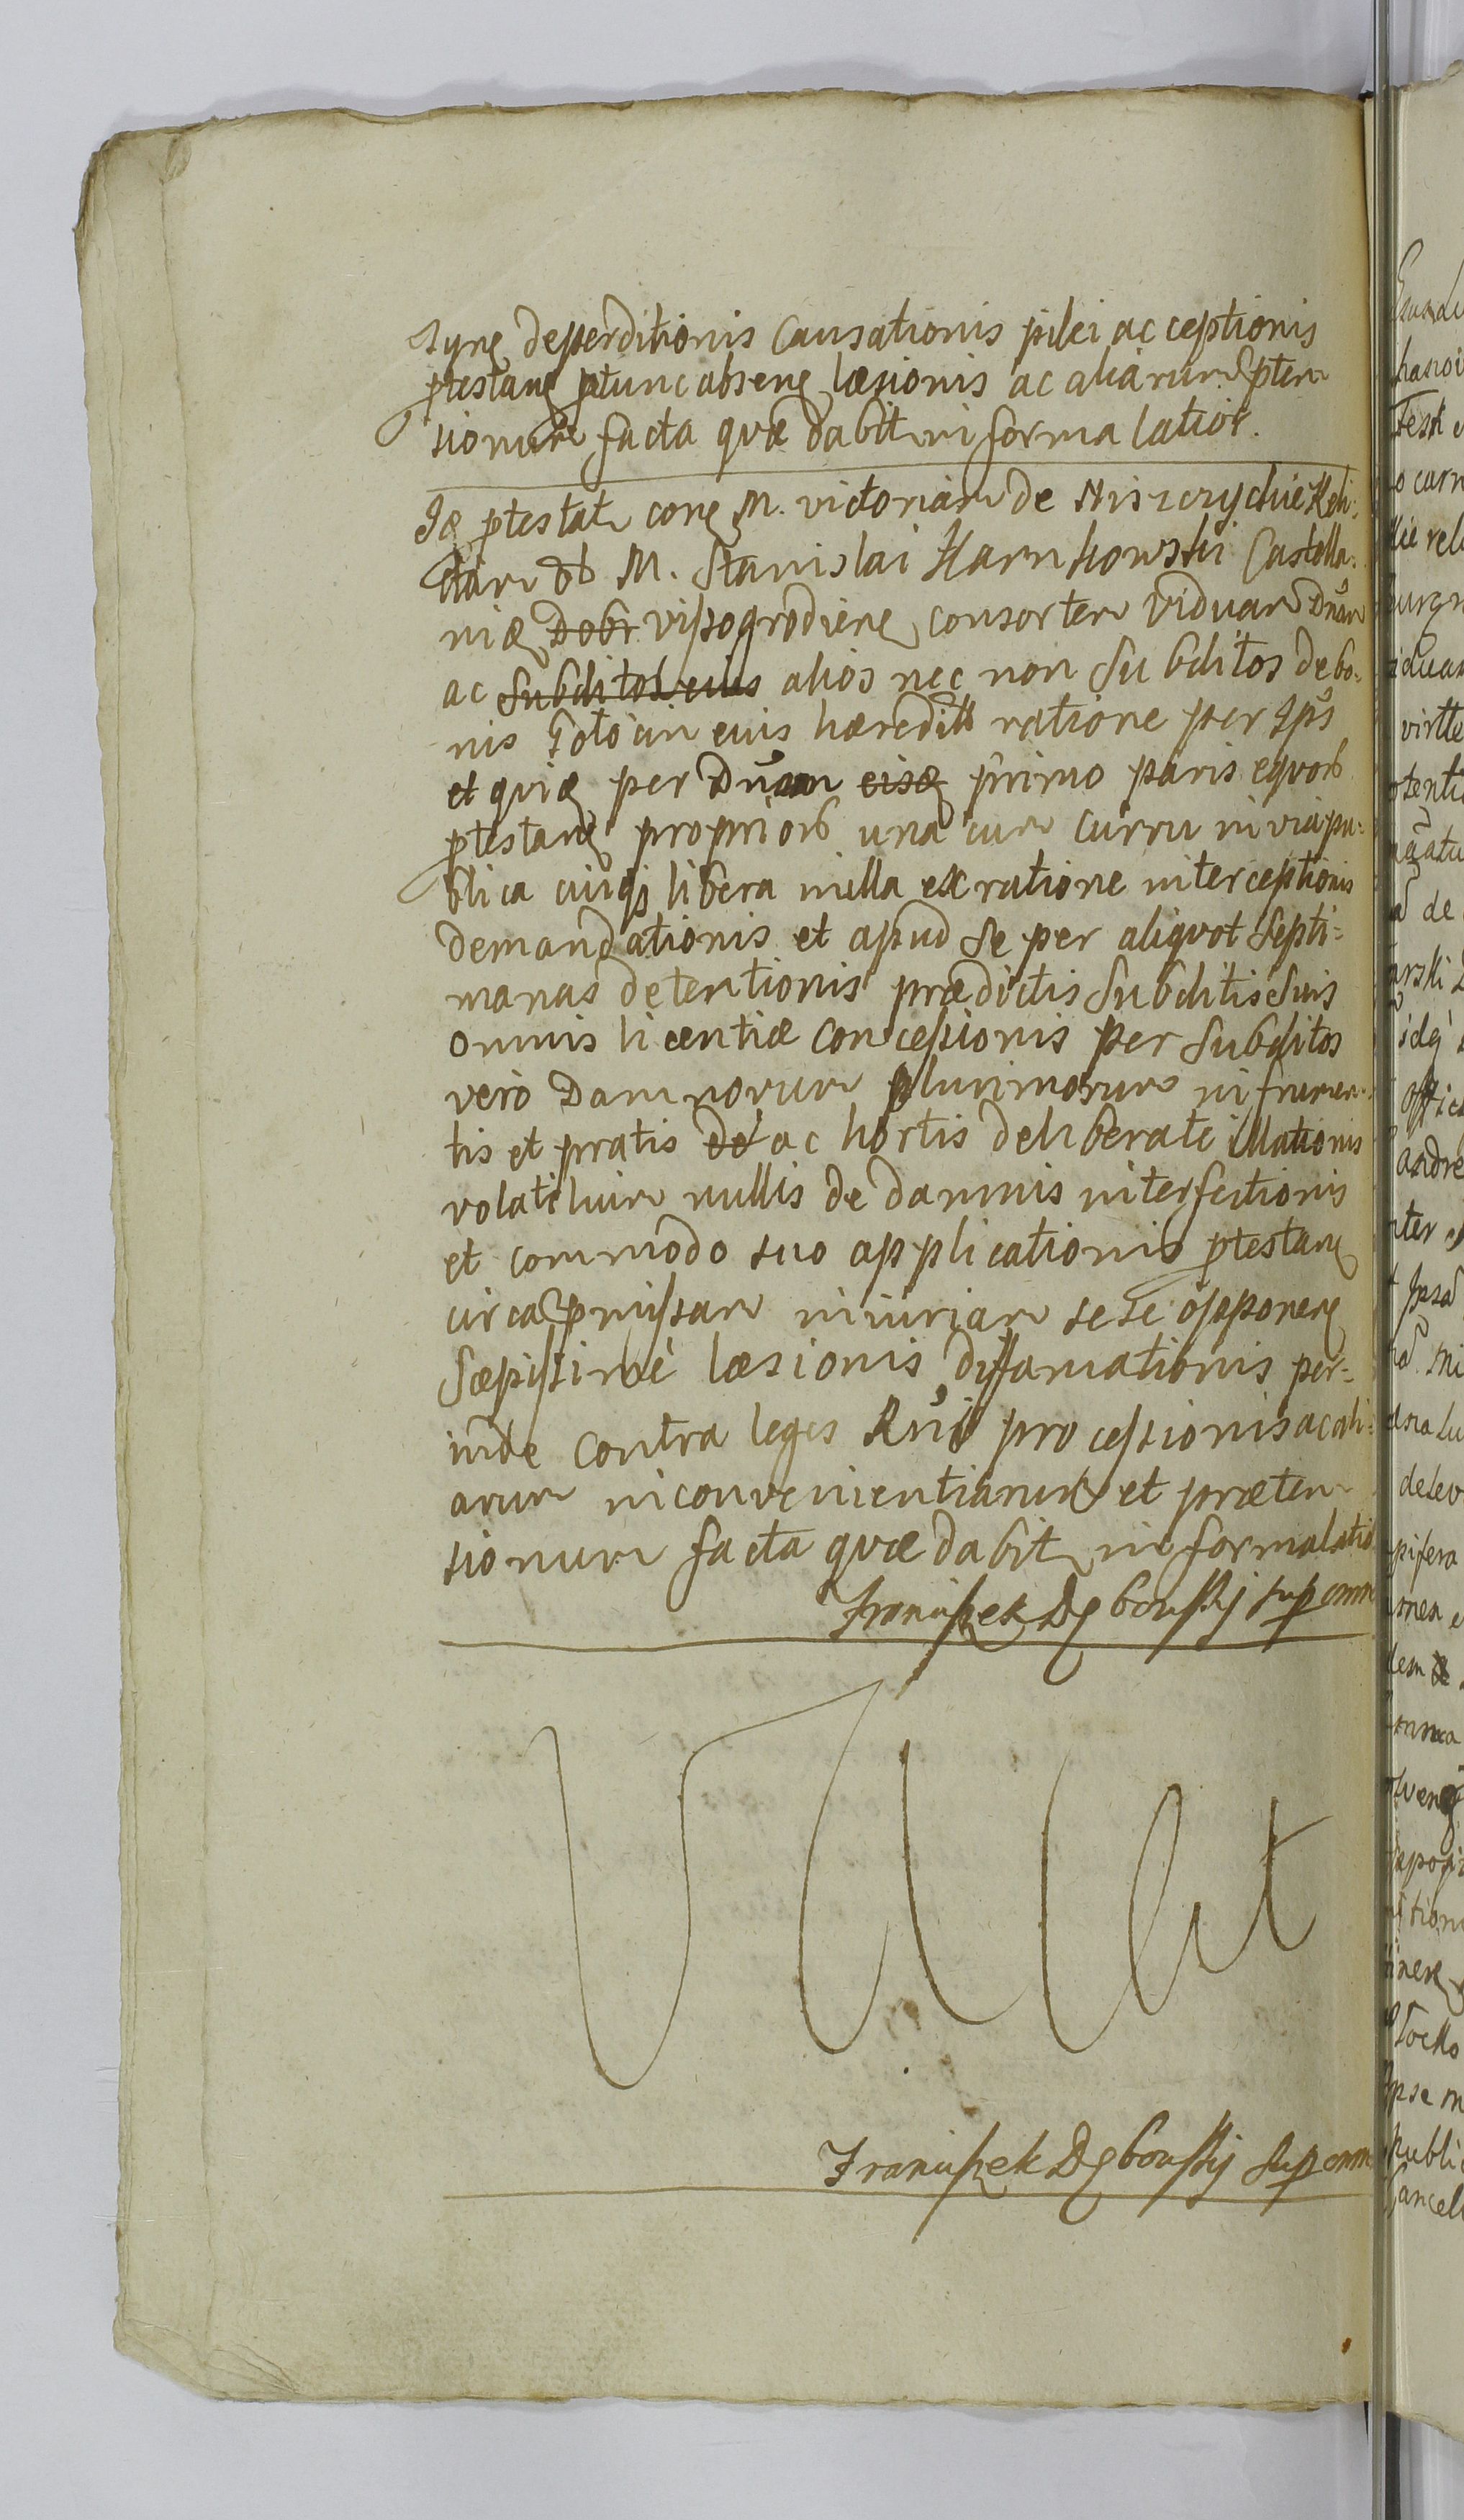 deperditionis causationis pilei acceptionis
ptestanę ptunc absenę læsionis ac aliarum pten
sionum facta quæ dabitur in forma latiori.
Idē ptestatr conę M. victoriam de Niszczychie Reli-
ctam ol M. Stanislai Karnkowski Castella-
niæ Dobr vissogrodienę consortem viduam Dnam
ac subditos eius alios nec non subditos de bo-
nis eius hæreditt ratione per Ips
et quidē per Dnam eisdē primo paris equorū
ptestanę propriorū una cum curru in via pu-
blica cuiusqj libera nulla ex ratione interceptionis
demandationis et apud se per aliquot septi-
manas detentionis prædictis subditis suis
omnis licentiæ concessionis per subditos
vero damnorum plurimorum in frumen-
tis et pratis de ac hortis deliberate illationis
volatilium nullis de damnis interfectionis
et commodo suo applicationis ptestanę
circa pmissam iniuriam sese opponenę
sæpissime læsionis diffamationis per-
inde contra leges Rni processionis ac ali-
arum inconvenientiarum et præten
sionum facta quæ dabitr in forma latio
Franciszek Dębowskij supmm
Vacat
Franciszek Dębowskij supmm